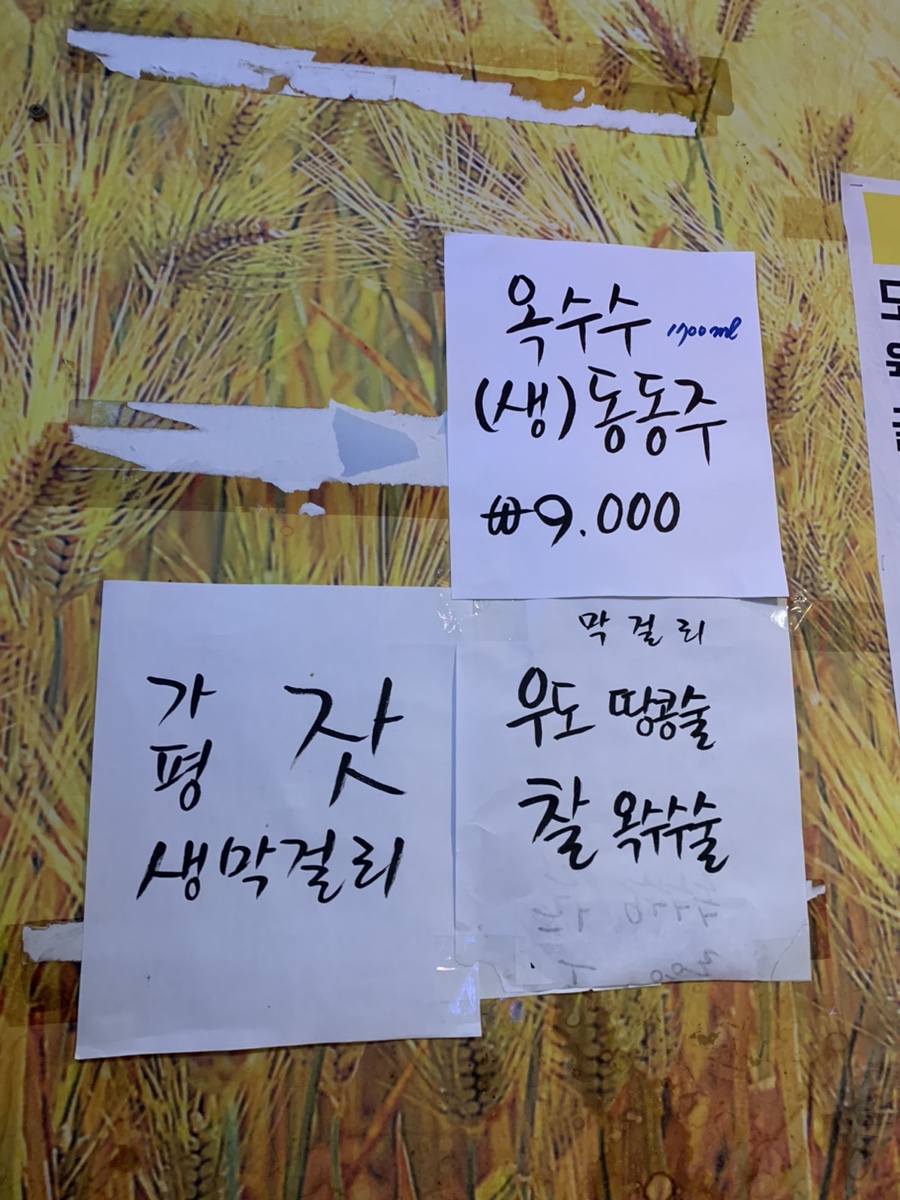 옥수수 1700ml
(생)동동주
₩9.000
가평 잣
생막걸리
막걸리
우도 땅콩술
찰 옥수수술